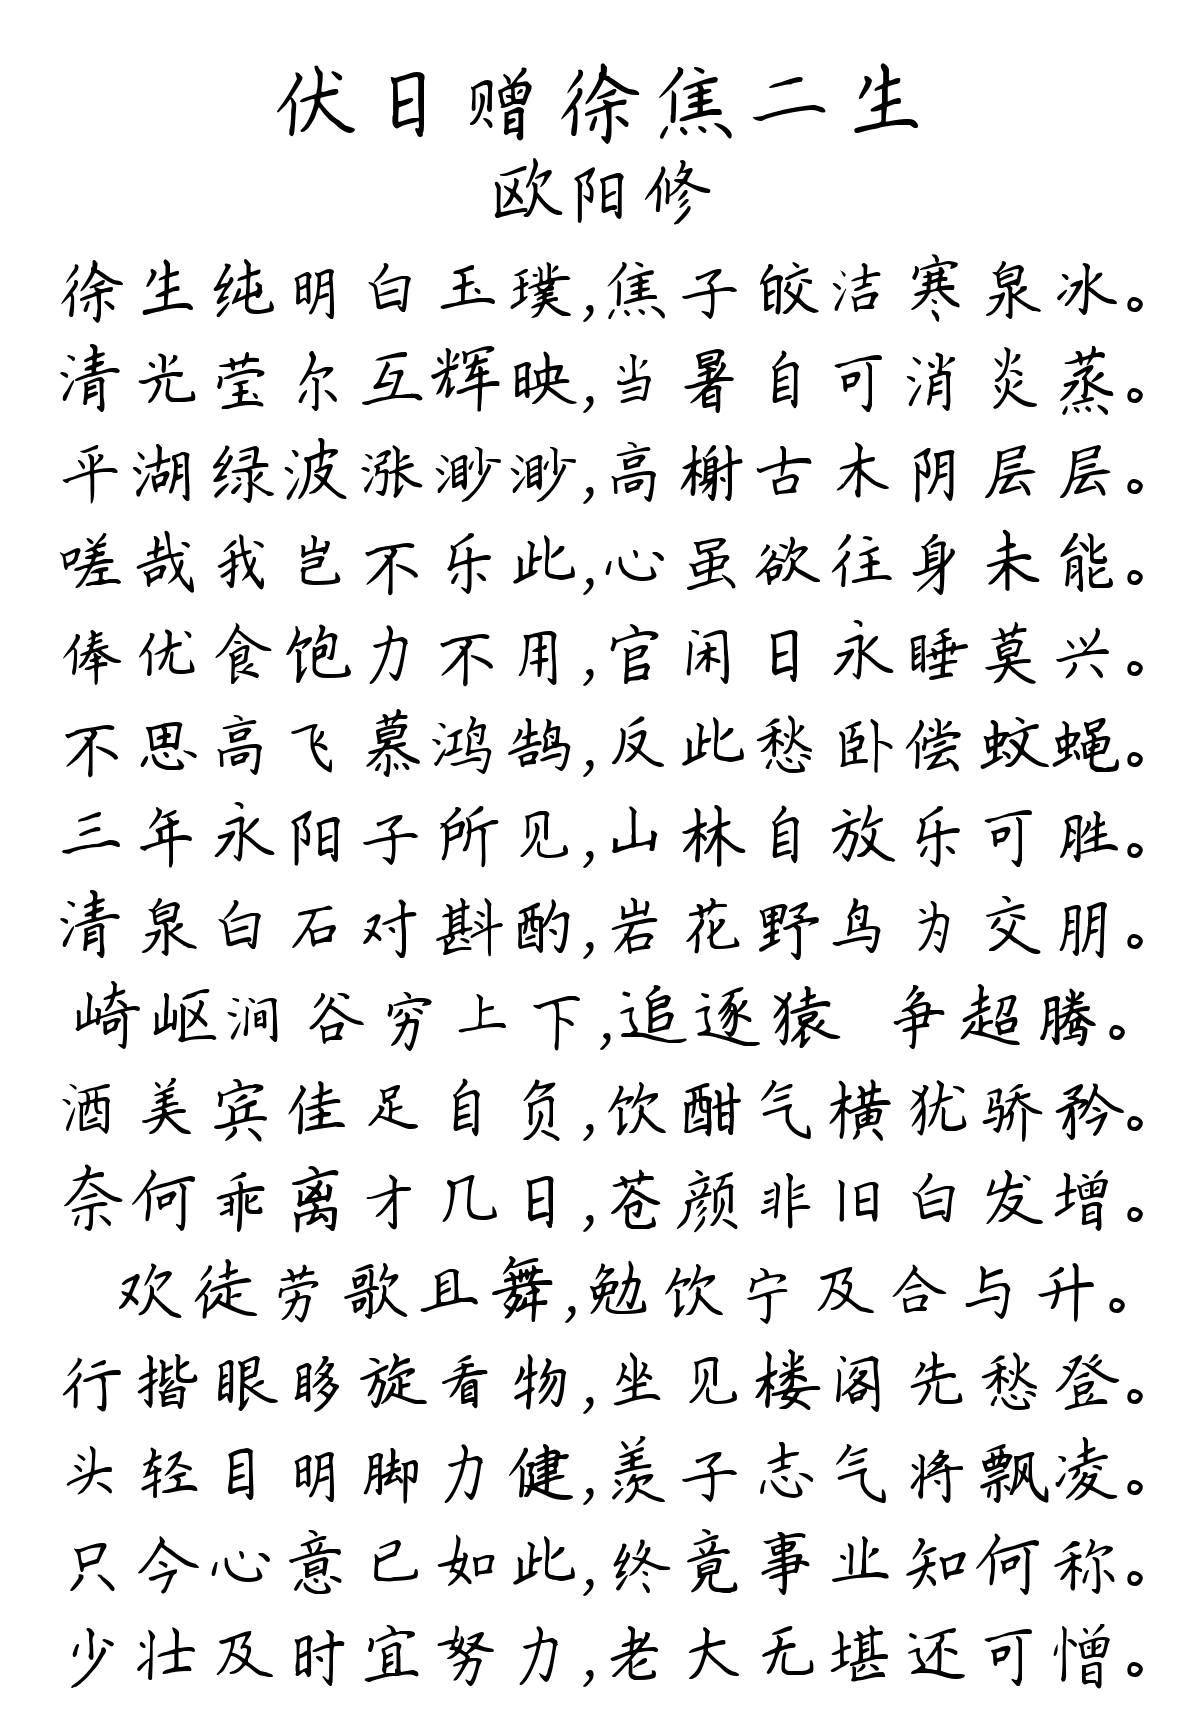 伏日赠徐焦二生
欧阳修
徐生纯明白玉璞,焦子皎洁寒泉冰。
清光莹尔互辉映,当暑自可消炎蒸。
平湖绿波涨渺渺,高榭古木阴层层。
嗟哉我岂不乐此,心虽欲往身未能。
俸优食饱力不用,官闲日永睡莫兴。
不思高飞慕鸿鹄,反此愁卧偿蚊蝇。
三年永阳子所见,山林自放乐可胜。
清泉白石对斟酌,岩花野鸟为交朋。
崎岖涧谷穷上下,追逐猿 争超腾。
酒美宾佳足自负,饮酣气横犹骄矜。
奈何乖离才几日,苍颜非旧白发增。
欢徒劳歌且舞,勉饮宁及合与升。
行揩眼眵旋看物,坐见楼阁先愁登。
头轻目明脚力健,羡子志气将飘凌。
只今心意已如此,终竟事业知何称。
少壮及时宜努力,老大无堪还可憎。